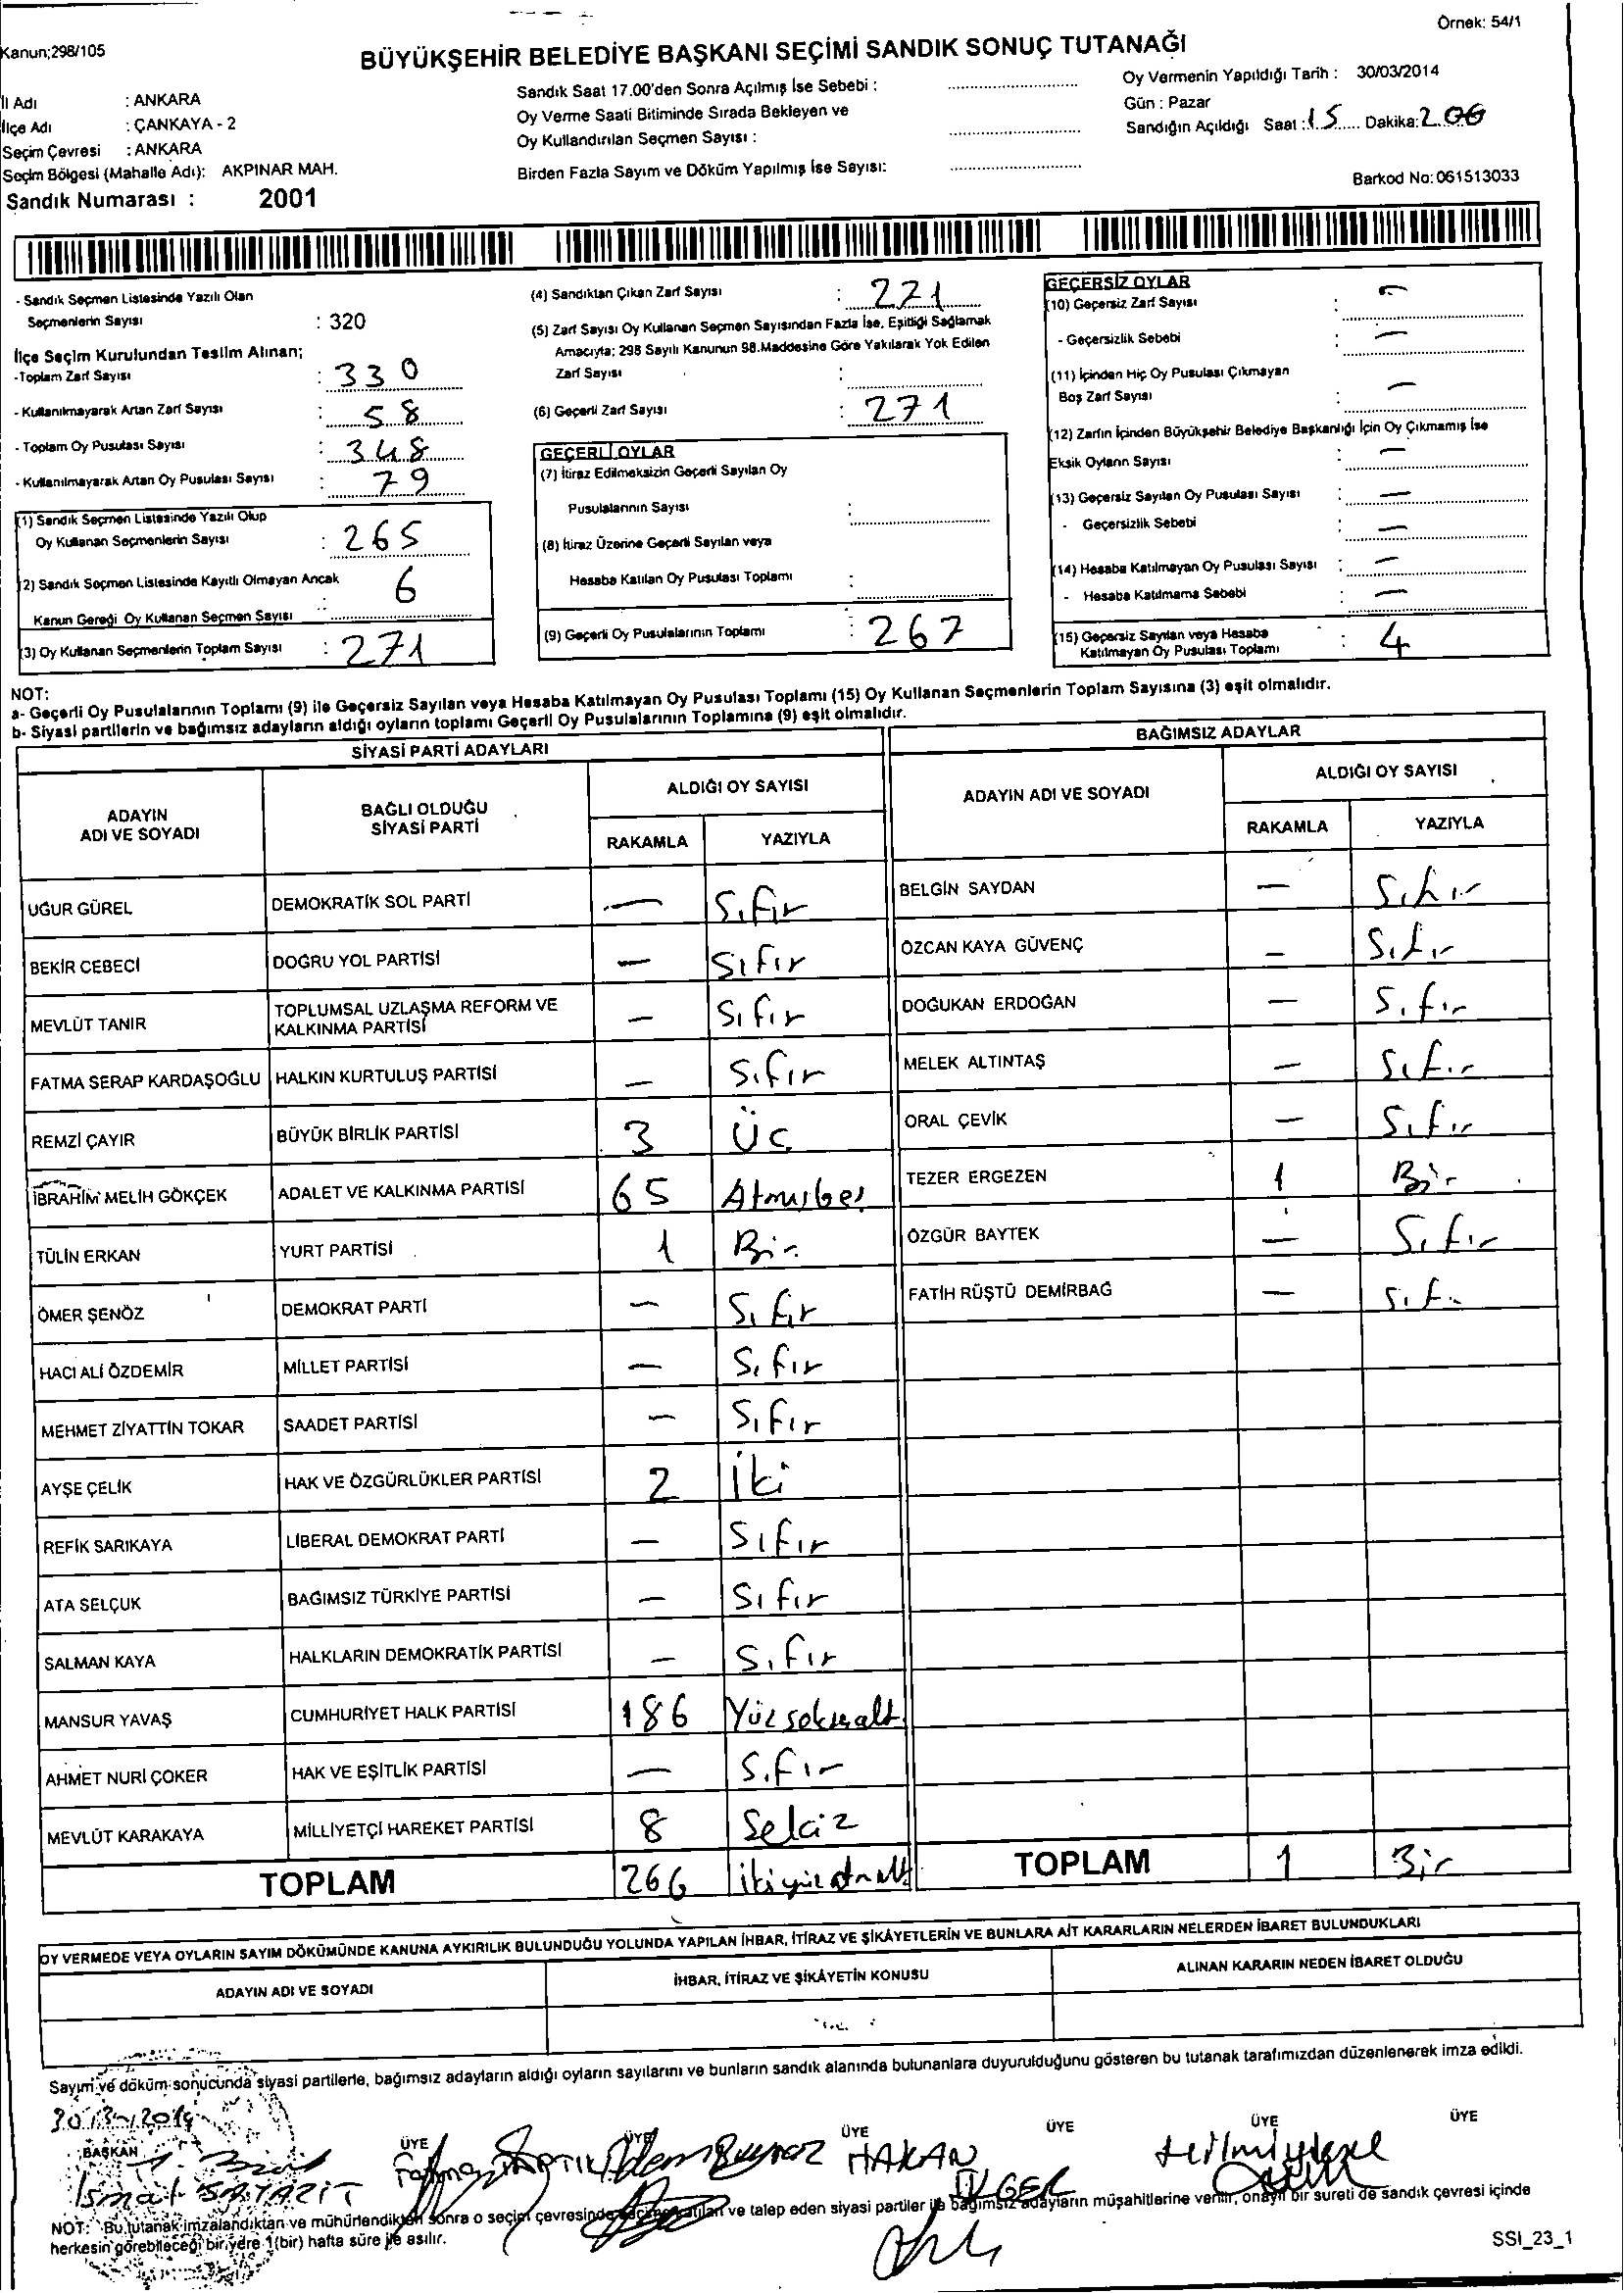 Örnek: 54/1
Kanun;298/105
BÜYÜKŞEHİR BELEDİYE BAŞKANI SEÇİMİ SANDIK SONUÇ TUTANAĞI
İl Adı : ANKARA
İlçe Adı : ÇANKAYA - 2
Seçim Çevresi : ANKARA
Seçim Bölgesi (Mahalle Adı): AKPINAR MAH.
Sandık Numarası : 2001
Sandık Saat 17.00'den Sonra Açılmış İse Sebebi :
Oy Verme Saati Bitiminde Sırada Bekleyen ve
Oy Kullandırılan Seçmen Sayısı :
Birden Fazla Sayım ve Döküm Yapılmış İse Sayısı:
Oy Vermenin Yapıldığı Tarih : 30/03/2014
Gün : Pazar
Sandığın Açıldığı Saat : 15 Dakika:
Barkod No: 061513033
- Sandık Seçmen Listesinde Yazılı Olan
Seçmenlerin Sayısı : 320
İlçe Seçim Kurulundan Teslim Alınan;
-Toplam Zarf Sayısı : 330
- Kullanılmayarak Artan Zarf Sayısı : 58
- Toplam Oy Pusulası Sayısı : 348
- Kullanılmayarak Artan Oy Pusulası Sayısı : 79
(1) Sandık Seçmen Listesinde Yazılı Olup
Oy Kullanan Seçmenlerin Sayısı : 265
(2) Sandık Seçmen Listesinde Kayıtlı Olmayan Ancak
Kanun Gereği Oy Kullanan Seçmen Sayısı : 6
(3) Oy Kullanan Seçmenlerin Toplam Sayısı : 271
(4) Sandıktan Çıkan Zarf Sayısı : 271
(5) Zarf Sayısı Oy Kullanan Seçmen Sayısından Fazla İse, Eşitliği Sağlamak
Amacıyla; 298 Sayılı Kanunun 98.Maddesine Göre Yakılarak Yok Edilen
Zarf Sayısı :
(6) Geçerli Zarf Sayısı : 271
GEÇERLİ OYLAR
(7) İtiraz Edilmeksizin Geçerli Sayılan Oy
Pusulalarının Sayısı :
(8) İtiraz Üzerine Geçerli Sayılan veya
Hesaba Katılan Oy Pusulası Toplamı :
(9) Geçerli Oy Pusulalarının Toplamı : 267
GEÇERSİZ OYLAR
(10) Geçersiz Zarf Sayısı : —
- Geçersizlik Sebebi : —
(11) İçinden Hiç Oy Pusulası Çıkmayan
Boş Zarf Sayısı : —
(12) Zarfın İçinden Büyükşehir Belediye Başkanlığı İçin Oy Çıkmamış İse
Eksik Oyların Sayısı : —
(13) Geçersiz Sayılan Oy Pusulası Sayısı : —
- Geçersizlik Sebebi : —
(14) Hesaba Katılmayan Oy Pusulası Sayısı : —
- Hesaba Katılmama Sebebi : —
(15) Geçersiz Sayılan veya Hesaba
Katılmayan Oy Pusulası Toplamı : 4
NOT:
a- Geçerli Oy Pusulalarının Toplamı (9) ile Geçersiz Sayılan veya Hesaba Katılmayan Oy Pusulası Toplamı (15) Oy Kullanan Seçmenlerin Toplam Sayısına (3) eşit olmalıdır.
b- Siyasi partilerin ve bağımsız adayların aldığı oyların toplamı Geçerli Oy Pusulalarının Toplamına (9) eşit olmalıdır.
SİYASİ PARTİ ADAYLARI
ADAYIN ADI VE SOYADI
BAĞLI OLDUĞU SİYASİ PARTİ
ALDIĞI OY SAYISI
RAKAMLA YAZIYLA
UĞUR GÜREL DEMOKRATİK SOL PARTİ — Sıfır
BEKİR CEBECİ DOĞRU YOL PARTİSİ — Sıfır
MEVLÜT TANIR TOPLUMSAL UZLAŞMA REFORM VE KALKINMA PARTİSİ — Sıfır
FATMA SERAP KARDAŞOĞLU HALKIN KURTULUŞ PARTİSİ — Sıfır
REMZİ ÇAYIR BÜYÜK BİRLİK PARTİSİ 3 Üç
İBRAHİM MELİH GÖKÇEK ADALET VE KALKINMA PARTİSİ 65 Atmışbeş
TÜLİN ERKAN YURT PARTİSİ 1 Bir
ÖMER ŞENÖZ DEMOKRAT PARTİ — Sıfır
HACI ALİ ÖZDEMİR MİLLET PARTİSİ — Sıfır
MEHMET ZİYATTİN TOKAR SAADET PARTİSİ — Sıfır
AYŞE ÇELİK HAK VE ÖZGÜRLÜKLER PARTİSİ 2 İki
REFİK SARIKAYA LİBERAL DEMOKRAT PARTİ — Sıfır
ATA SELÇUK BAĞIMSIZ TÜRKİYE PARTİSİ — Sıfır
SALMAN KAYA HALKLARIN DEMOKRATİK PARTİSİ — Sıfır
MANSUR YAVAŞ CUMHURİYET HALK PARTİSİ 186 Yüzseksenaltı
AHMET NURİ ÇOKER HAK VE EŞİTLİK PARTİSİ — Sıfır
MEVLÜT KARAKAYA MİLLİYETÇİ HAREKET PARTİSİ 8 Sekiz
TOPLAM 266 ikiyüzatmaltı
BAĞIMSIZ ADAYLAR
ADAYIN ADI VE SOYADI
ALDIĞI OY SAYISI
RAKAMLA YAZIYLA
BELGİN SAYDAN — Sıfır
ÖZCAN KAYA GÜVENÇ — Sıfır
DOĞUKAN ERDOĞAN — Sıfır
MELEK ALTINTAŞ — Sıfır
ORAL ÇEVİK — Sıfır
TEZER ERGEZEN 1 Bir
ÖZGÜR BAYTEK — Sıfır
FATİH RÜŞTÜ DEMİRBAĞ — Sıfır
TOPLAM 1 Bir
OY VERMEDE VEYA OYLARIN SAYIM DÖKÜMÜNDE KANUNA AYKIRILIK BULUNDUĞU YOLUNDA YAPILAN İHBAR, İTİRAZ VE ŞİKÂYETLERİN VE BUNLARA AİT KARARLARIN NELERDEN İBARET BULUNDUKLARI
ADAYIN ADI VE SOYADI
İHBAR, İTİRAZ VE ŞİKÂYETİN KONUSU
ALINAN KARARIN NEDEN İBARET OLDUĞU
Sayım ve döküm sonucunda siyasi partilerle, bağımsız adayların aldığı oyların sayılarını ve bunların sandık alanında bulunanlara duyurulduğunu gösteren bu tutanak tarafımızdan düzenlenerek imza edildi.
30/3/2014
BAŞKAN ÜYE ÜYE ÜYE ÜYE ÜYE ÜYE
HAKAN
ÜLGER
NOT: Bu tutanak imzalandıktan ve mühürlendikten sonra o seçim çevresinde seçime katılan ve talep eden siyasi partiler ile bağımsız adayların müşahitlerine verilir, onaylı bir sureti de sandık çevresi içinde
herkesin görebileceği bir yere 1(bir) hafta süre ile asılır.
SSI_23_1